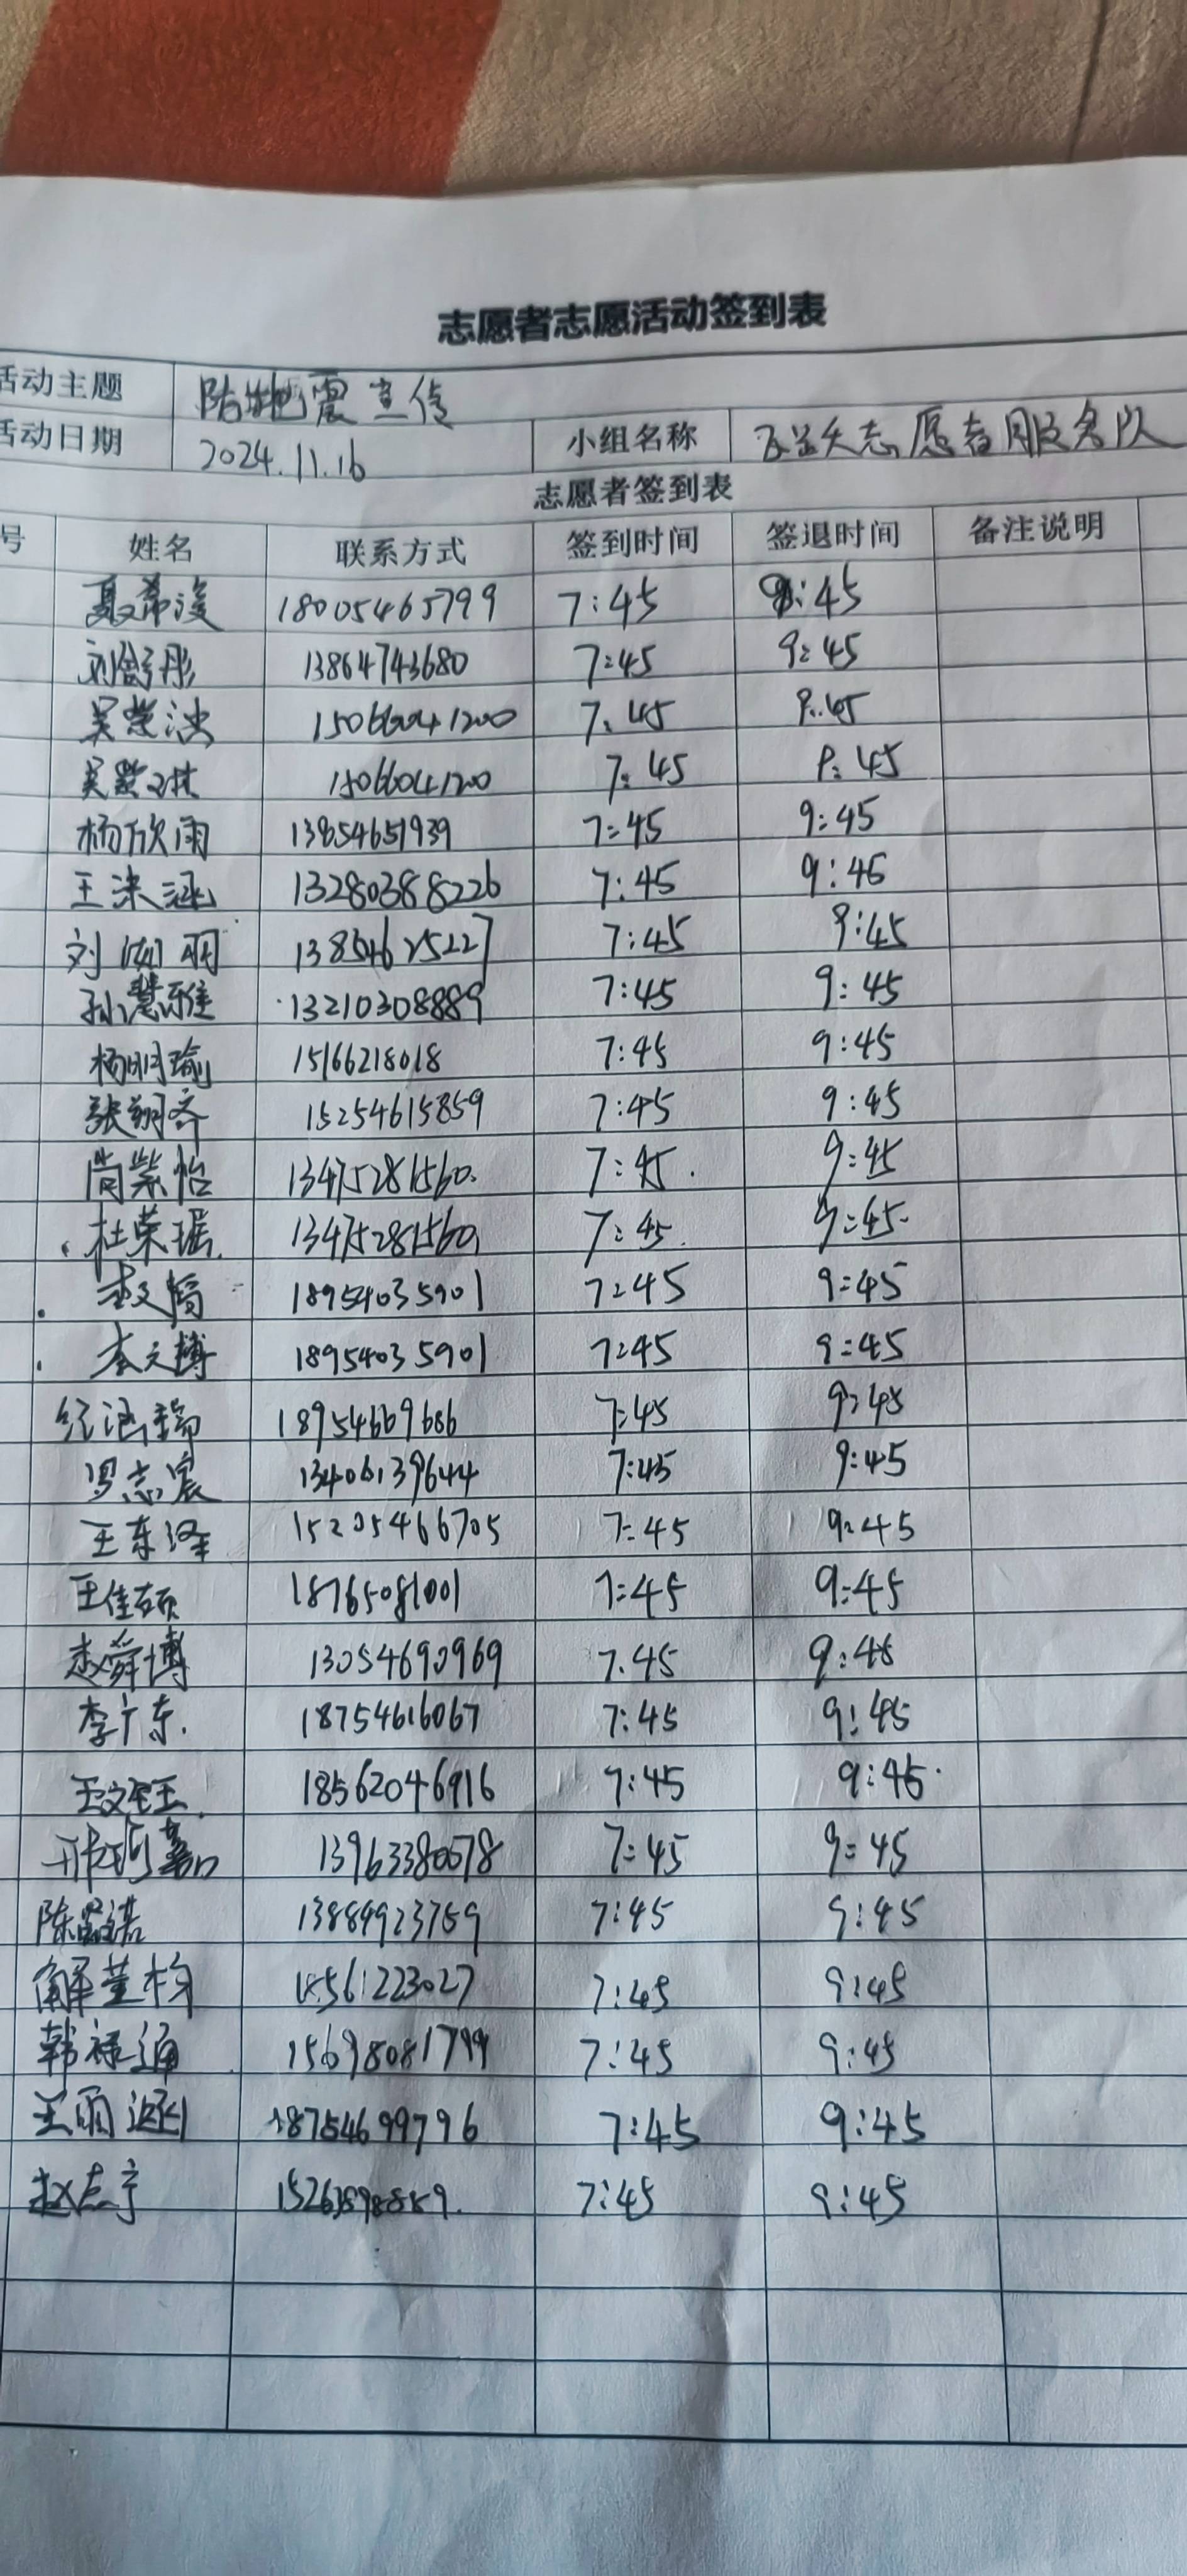 志愿者志愿活动签到表
活动主题 防地震宣传
活动日期 2024.11.16 小组名称 志愿者服务队
志愿者签到表
号 姓名 联系方式 签到时间 签退时间 备注说明
夏希浚 18005465799 7:45 9:45
刘舒彤 13864743680 7:45 9:45
吴 15066041200 7:45 9:45
吴 15066041200 7:45 9:45
杨欣雨 13854651939 7:45 9:45
王涵 13280388226 7:45 9:45
刘 13854625227 7:45 9:45
孙慧雅 13210308889 7:45 9:45
杨明瑜 15166218018 7:45 9:45
张翔齐 15254615859 7:45 9:45
尚紫怡 13475281560. 7:45. 9:45
杜荣瑶. 13475281560. 7:45. 9:45.
李文 18954035901 7:45 9:45
李文博 18954035901 7:45 9:45
纪涵瑞 18954669686 7:45 9:45
罗志宸 13406139644 7:45 9:45
王东泽 15205466705 7:45 9:45
王佳硕 18765081001 7:45 9:45
赵舜博 13054690969 7.45 9:45
李广东. 18754616067 7:45 9:45
王文 18562046916 7:45 9:45.
13963380678 7:45 9:45
陈诺 13889923759 7:45 9:45
解萱 561223027 7:45 9:45
韩禄通 15698081799 7:45 9:45
王雨涵 18754699796 7:45 9:45
赵志宇 7:45 9:45